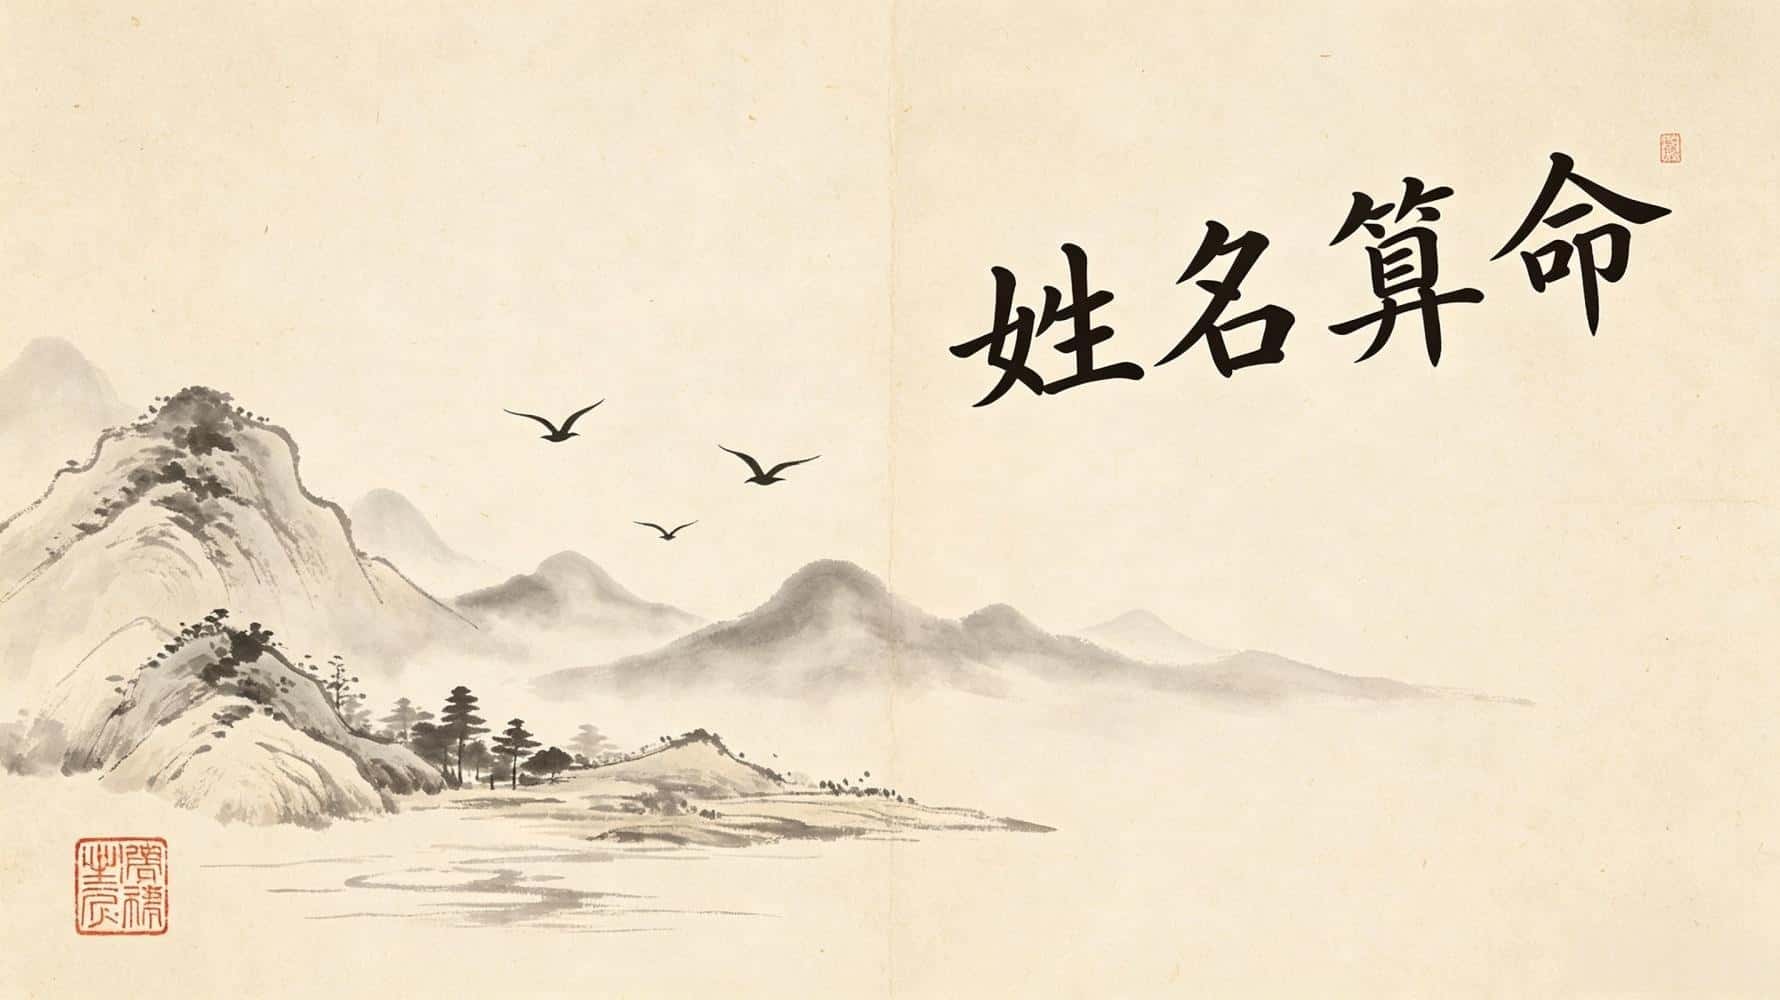 姓名算命